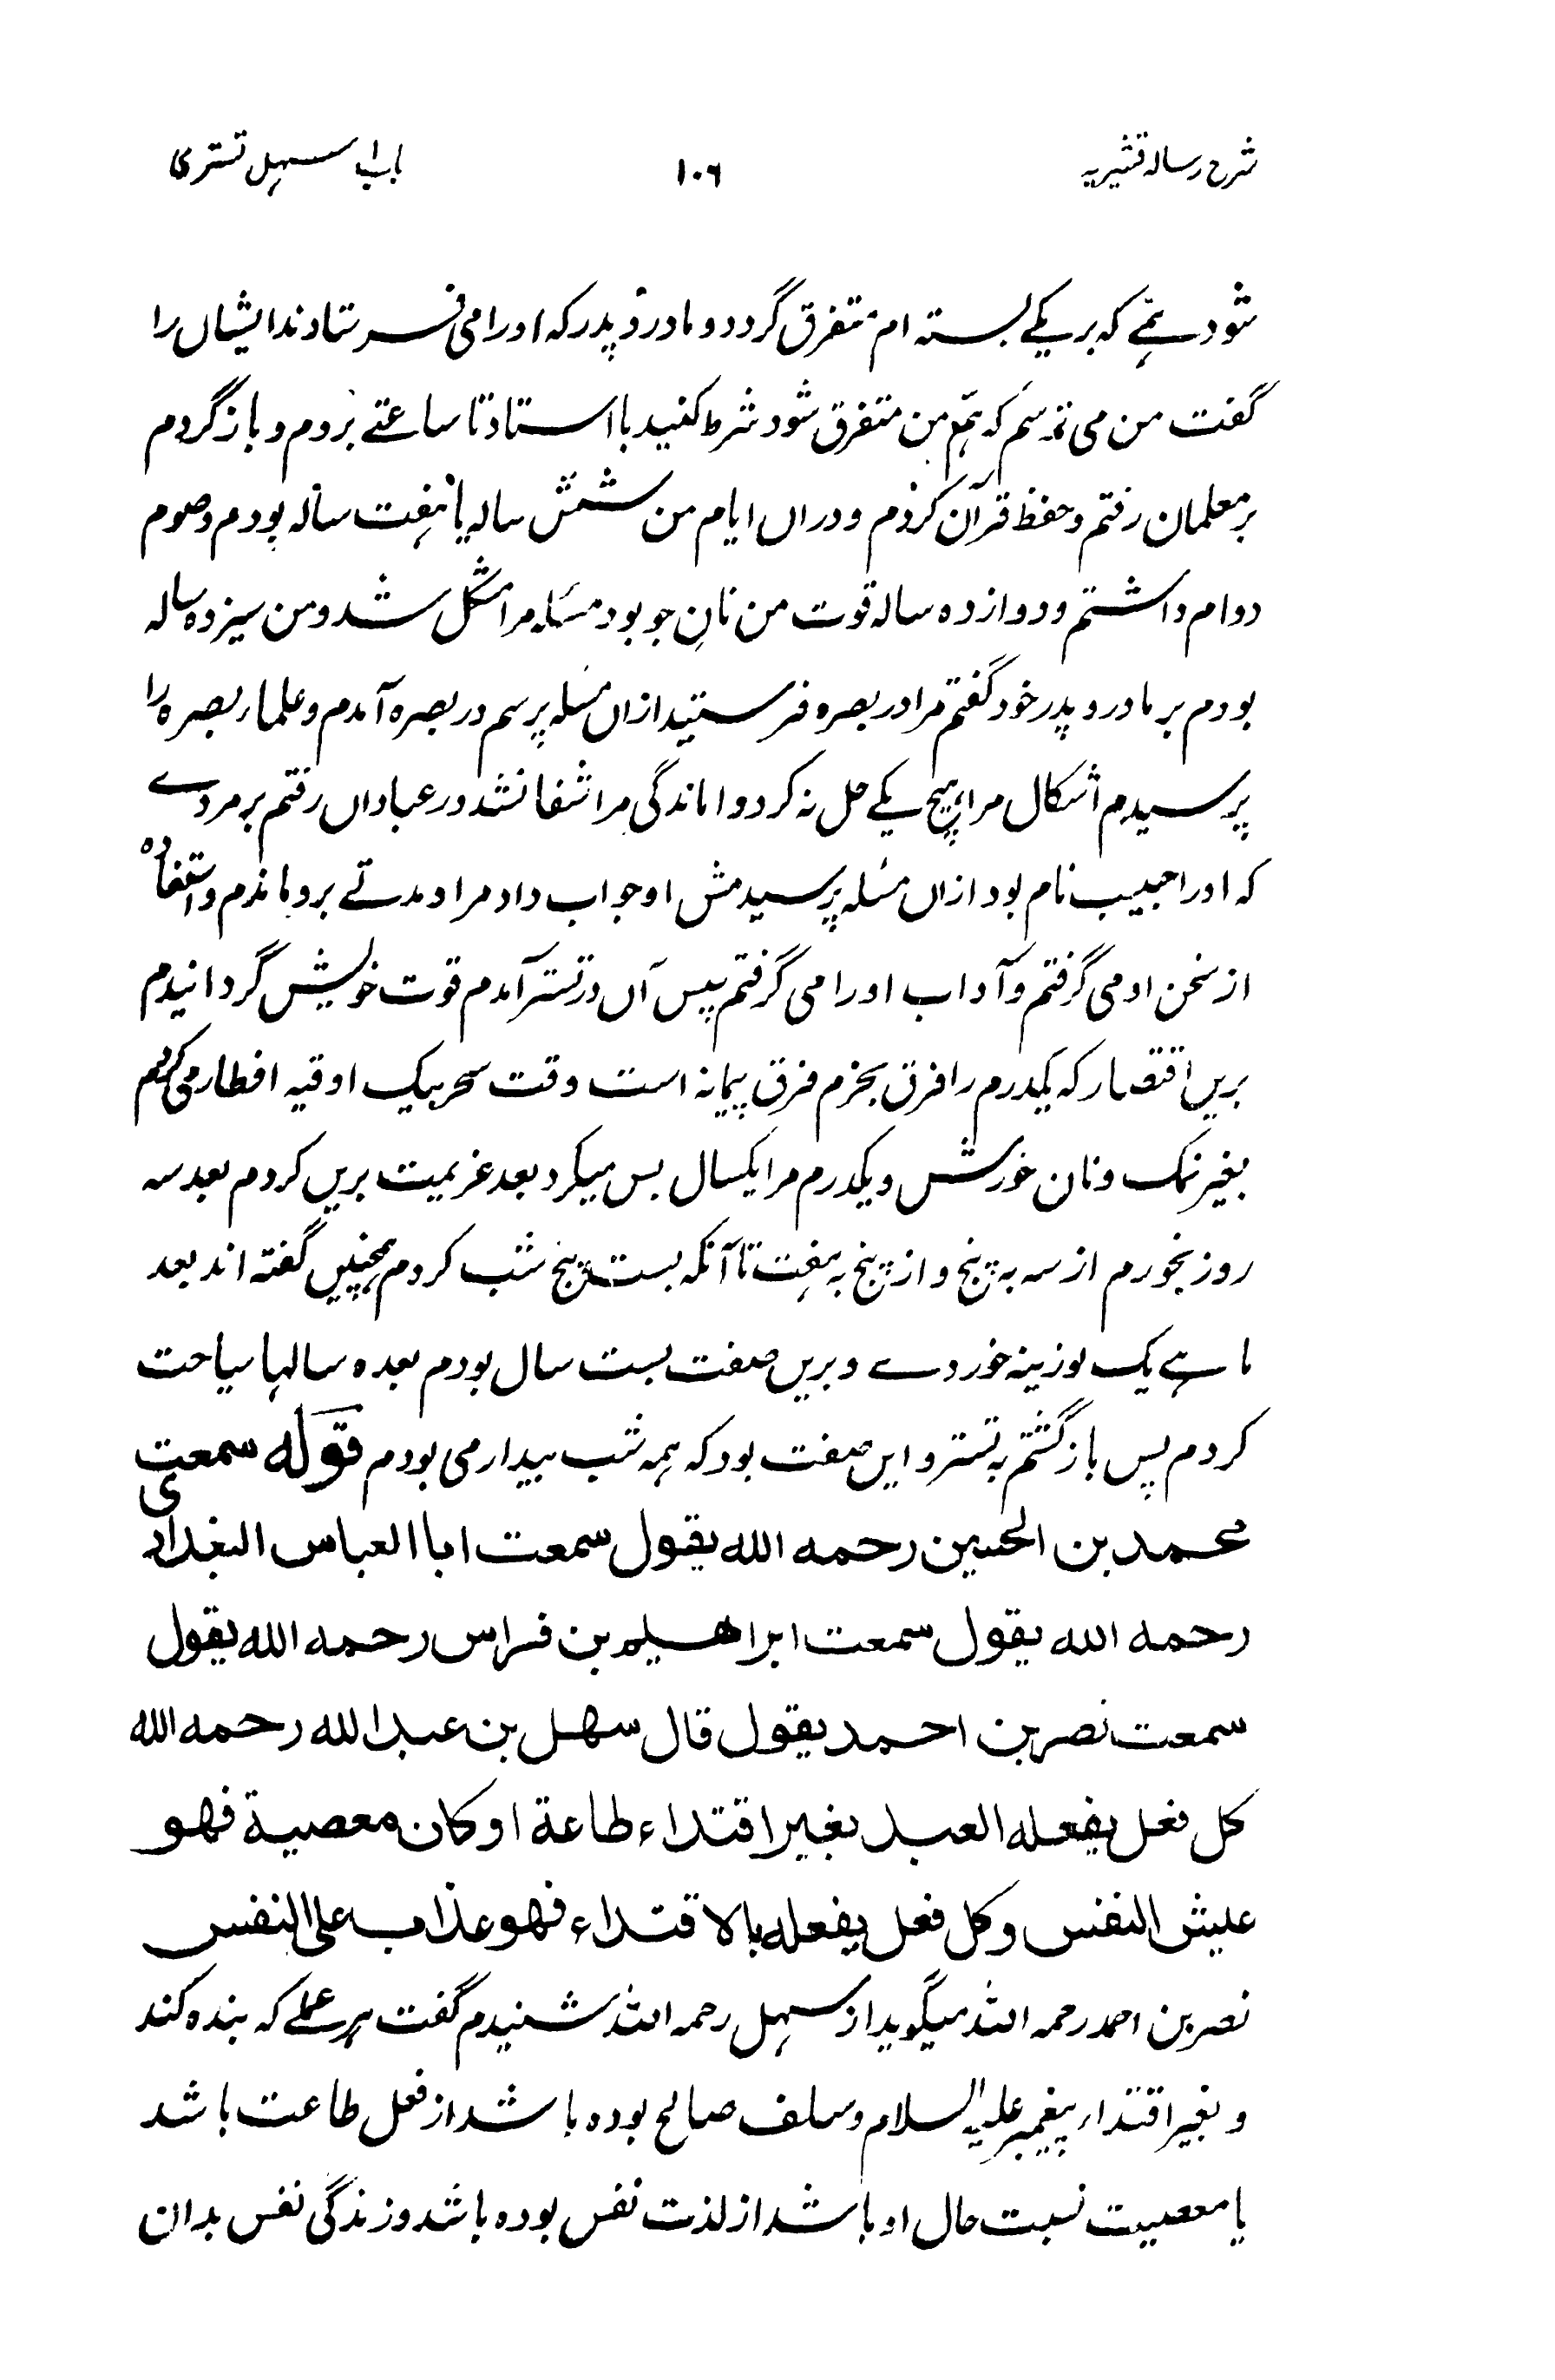 شرح رساله قشیریه ۱۰۶ باب سہل تستری
شود ہمے که بر یکے بسته ام متفرق گردد و مادر و پدر که او را می فرستادند ایشاں را
گفت من می ترسم که ہم من متفرق شود شرط کنید با استاد تا ساعتے بروم و باز گردم
بر معلمان رفتم و حفظ قرآن کردم و دراں ایام من شش ساله یا ہفت ساله بودم و صوم
دوام داشتم و دوازده ساله قوت من نانِ جو بود مسئله مرا مشکل شد و من سیزده ساله
بودم بر مادر و پدر خود گفتم مرا در بصره فرستید ازاں مسئله پرسم در بصره آمدم و علماء بصره را
پرسیدم اشکال مرا ہیچ یکے حل نه کرد و اماندگی مرا شفا نشد در عباداں رفتم بر مردے
که او را حبیب نام بود ازاں مسئله پرسیدمش او جواب داد مرا و مدتے برو ماندم و استفاده
از سخن او می گرفتم و آداب او را می گرفتم پس آں در تستر آمدم قوت خویش گردانیدم
بریں اقتصار که یکدرم را فرق بخرم فرق پیمانه است وقت سحر بیک اوقیه افطار می کردم
بغیر نمک و نان خورش و یکدرم مرا یکسال بس میکرد بعد عزیمت بریں کردم بعد سه
روز بخورم از سه به پنج و از پنج به ہفت تا آنکه بست پنج شب کردم ہمچنیں گفته اند بعد
ماہے یک لوزینه خوردے و بریں صفت بست سال بودم بعده سالہا سیاحت
کردم پس باز گشتم به تستر و ایں صفت بود که ہمه شب بیدار می بودم قوله سمعت
محمد بن الحسین رحمه الله یقول سمعت ابا العباس البغدادی
رحمه الله یقول سمعت ابراهیم بن فراس رحمه الله یقول
سمعت نصر بن احمد یقول قال سهل بن عبد الله رحمه الله
کل فعل یفعله العبد بغیر اقتداء طاعة او کان معصیة فهو
عیش النفس و کل فعل یفعله بالاقتداء فهو عذاب علی النفس
نصر بن احمد رحمه الله میگوید از سہل رحمه الله شنیدم گفت ہر عملے که بنده کند
و بغیر اقتداء پیغمبر علیہ السلام و سلف صالح بوده باشد از فعل طاعت باشد
یا معصیت نسبت حال او باشد از لذت نفس بوده باشد و زندگی نفس بدان